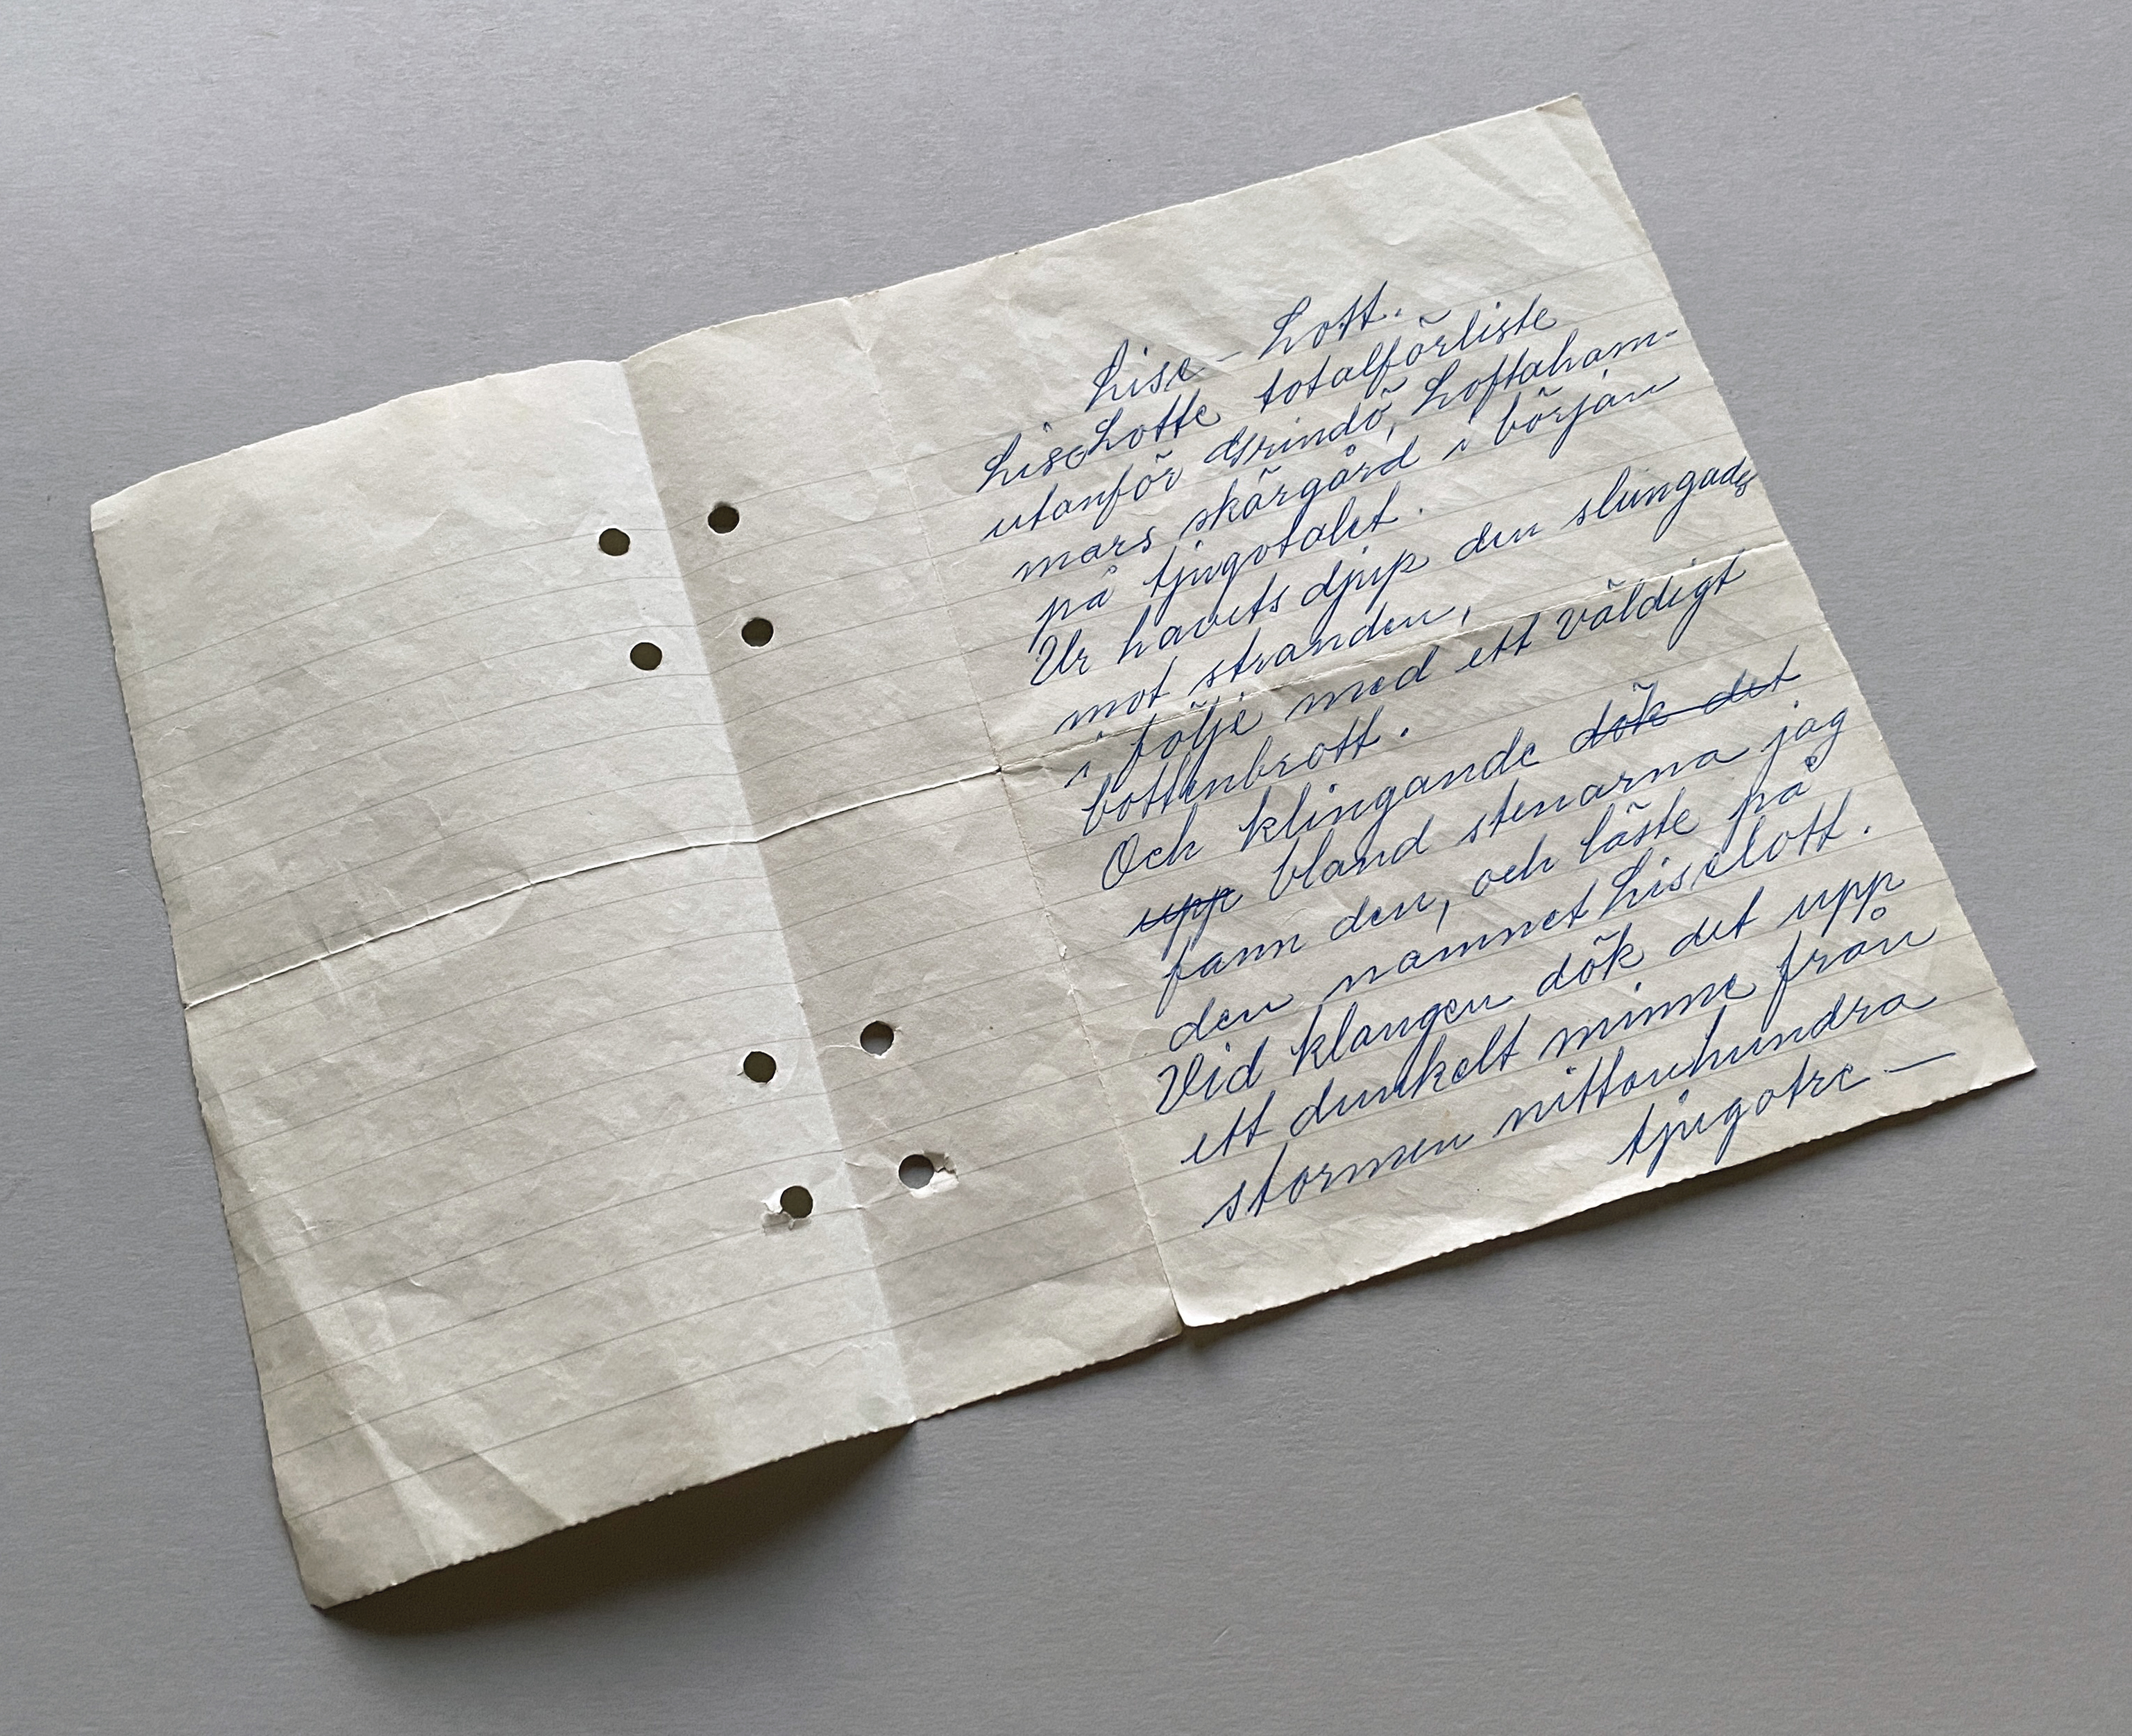 Lise-Lott.
LiseLotte totalförliste
utanför Grindö, Loftaham-
mars skärgård i början
på tjugotalet.
Ur havets djup den slungades
mot stranden,
i följe med ett väldigt
bottenbrott.
Och klingande dök det
upp bland stenarna jag
fann den, och läste på
den namnet Liselott.
Vid klangen dök det upp
ett dunkelt minne från
stormen nittonhundra
tjugotre —